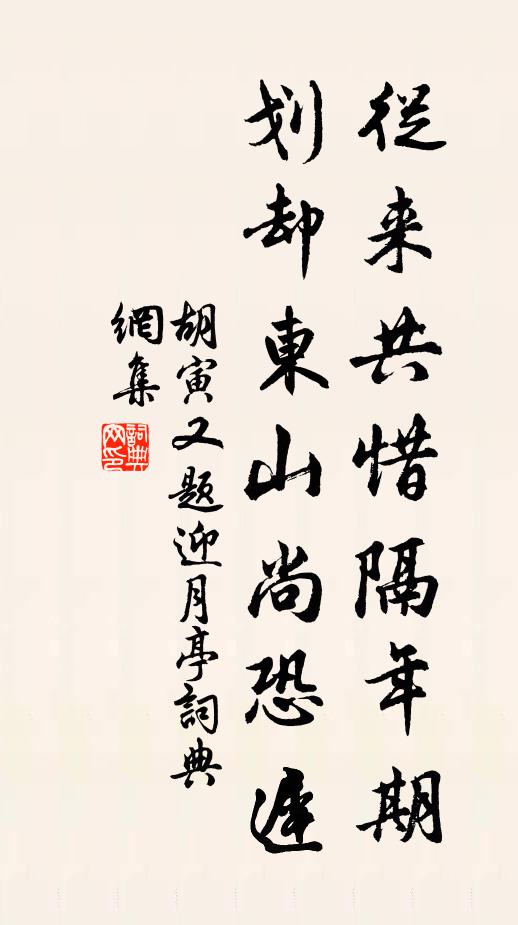 從來共惜隔年期
划却東山尚恐遲
胡寅又題迎月亭詞典
網集
詞典網印